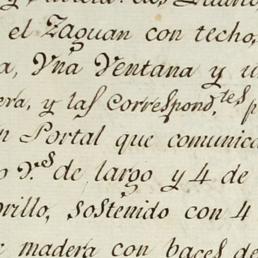 el Zaguan con techo,
a, Vña Ventana y u
era, y las correspond.tes p
n Portal que comunica
o v.s de largo y 4 de
rillo, sostenido con 4
madera con baces de